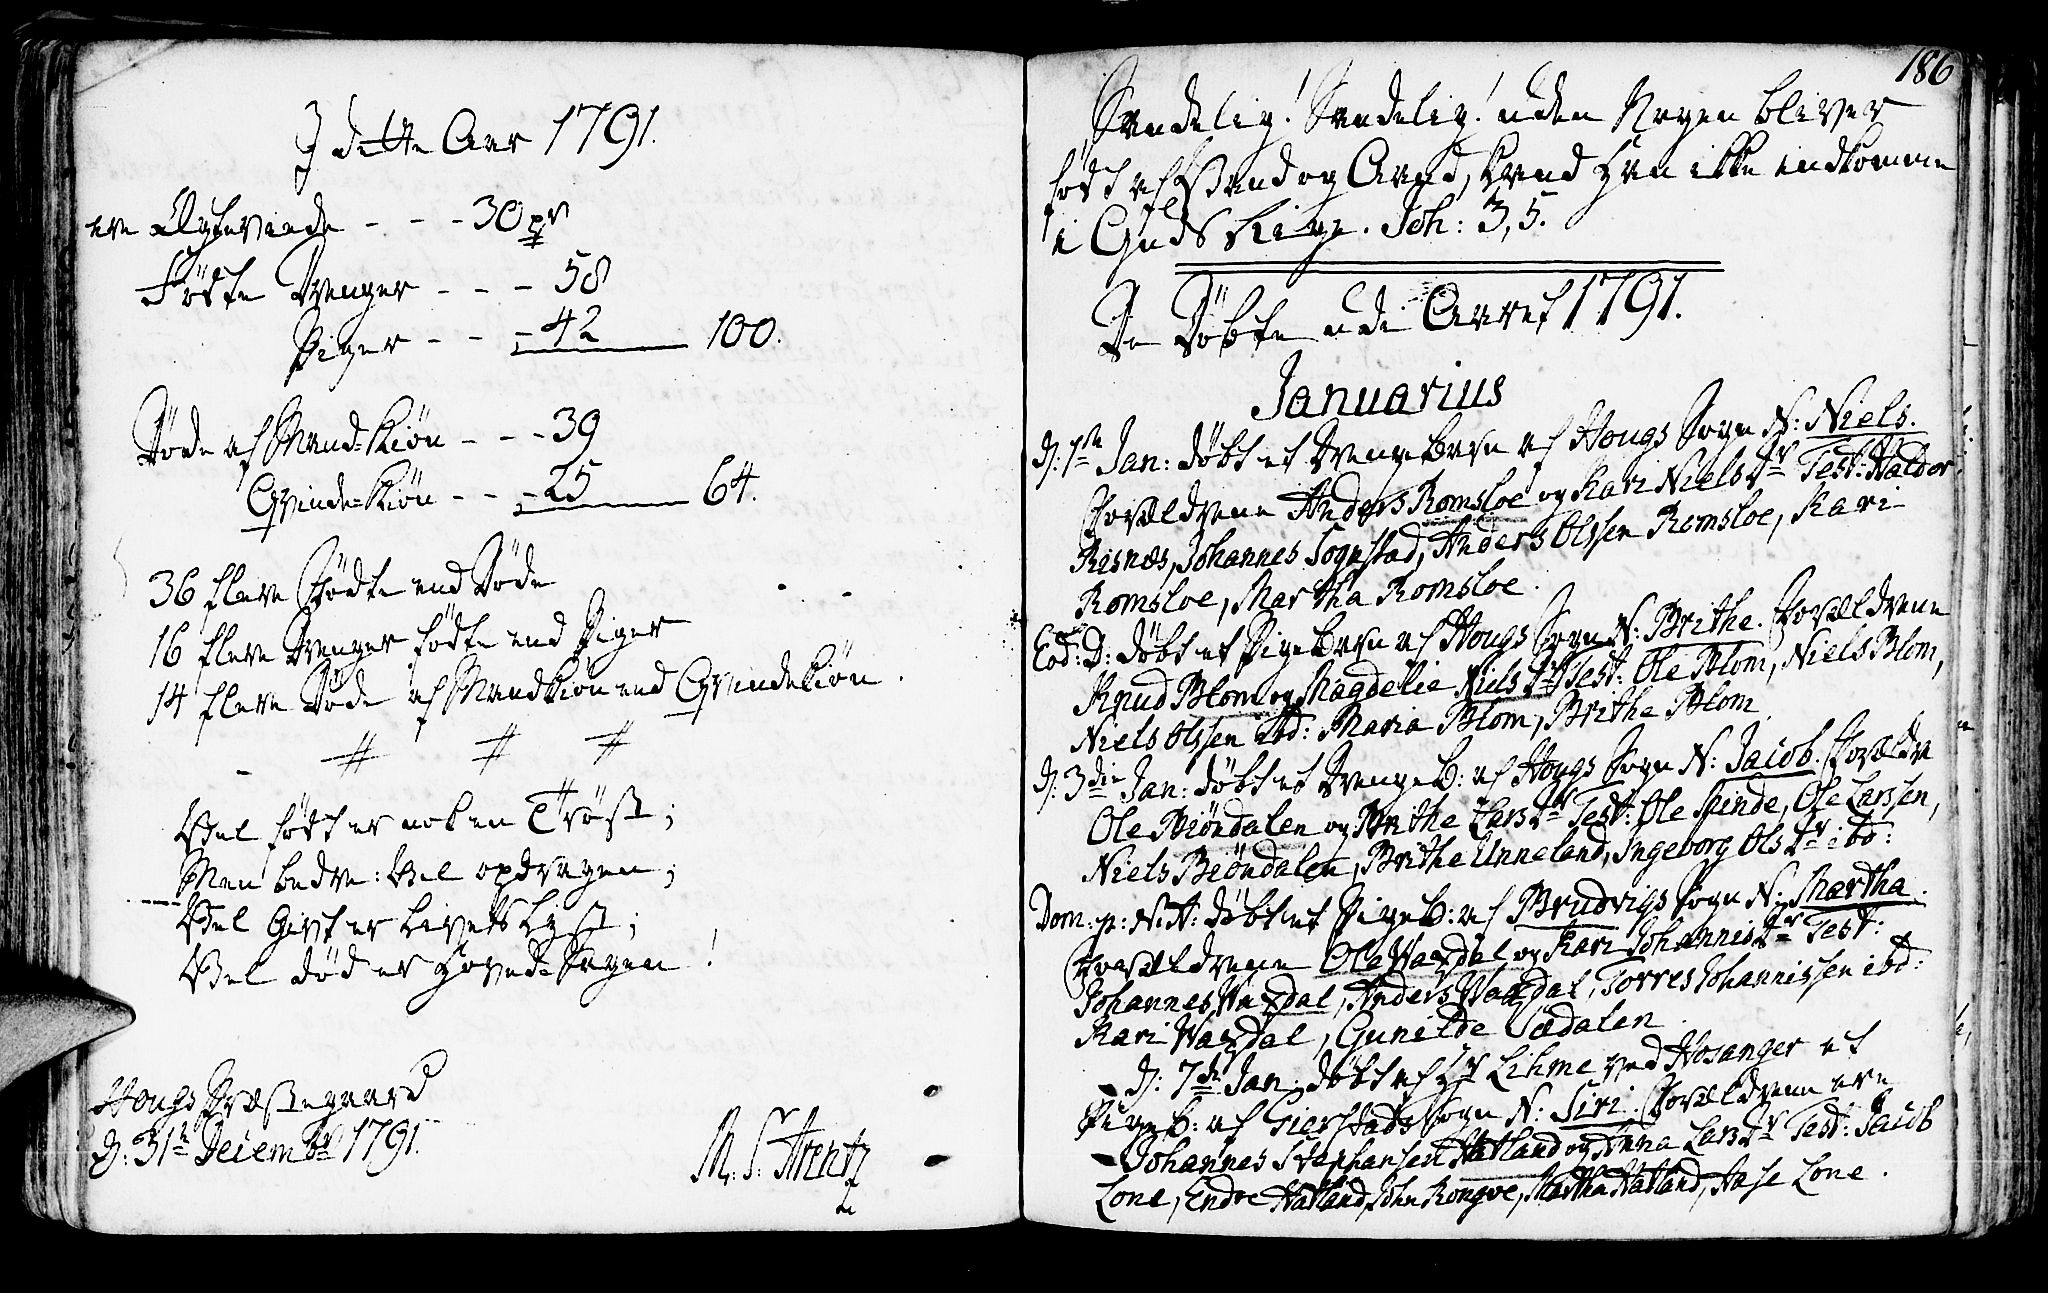 I dette Aar 1791.
ere Ægteviede - - - 30 pr
Fødte Drenger - - - 58
Piger - - - 42 100.
Døde af Mand-Kiøn - - - 39
Qvinde-Kiøn - - - 25 64.
36 flere Fødte end Døde
16 flere Drenger fødte end Piger
14 flere Døde af Mandkiøn end Qvindekiøn.
Vel født er nok en Trøst;
Men bedre: Vel opdragen;
Vel Givt er Livets Lyst;
Vel død er Hoved-Sagen!
Hougs Præstegaard
d: 31te Decembr 1791.
M. S. Arentz
186
Sandelig! Sandelig! uden Nogen bliver
født af Vand og Aand, kand Han ikke indkomme
i Guds Rige. Joh: 3,5.
De Døbte udi Aaret 1791.
Januarius
d: 1ste Jan: døbt et Drengebarn af Hougs Sogn N: Niels.
Forældrene Anders Romsloe og Kari Nielsdtr Test: Haldor
Risnæs, Johannes Sognstad, Anders Olssen Romsloe, Kari
Romsloe, Martha Romsloe.
Eod: D: døbt et Pigebarn af Hougs Sogn N: Brithe. Forældrene
Knud Blom og Magdelie Nielsdtr Test: Ole Blom, Niels Blom,
Niels Olssen ibd: Maria Blom, Brithe Blom.
d: 3die Jan: døbt et DrengeB: af Hougs Sogn N: Jacob. Forældre
Ole Biöndalen og Brithe Larsdtr Test: Ole Rinde, Ole Larssen,
Niels Biöndalen, Brithe Unneland, Ingeborg Olsdtr ibd:
Dom: p: N:A: døbt et PigeB: af Brudvigs Sogn N: Martha.
Forældrene Ole Waxdal og Kari Johannisdtr Test:
Johannes Waxdal, Anders Waxdal, Torres Johannissen ibd:
Kari Waxdal, Gunilde Sædalen.
d: 7de Jan: døbt af Hr Lihme ved Hosanger et
PigeB: af Gierstads Sogn N: Siri. Forældrene ere
Johannes Stephansen Hatland og Anna Larsdtr Test: Jacob
Lone, Endre Hatland, John Rongve, Martha Hatland, Aase Lone.